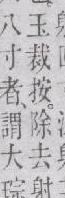 玉裁按、除去射
八寸者、謂大琮